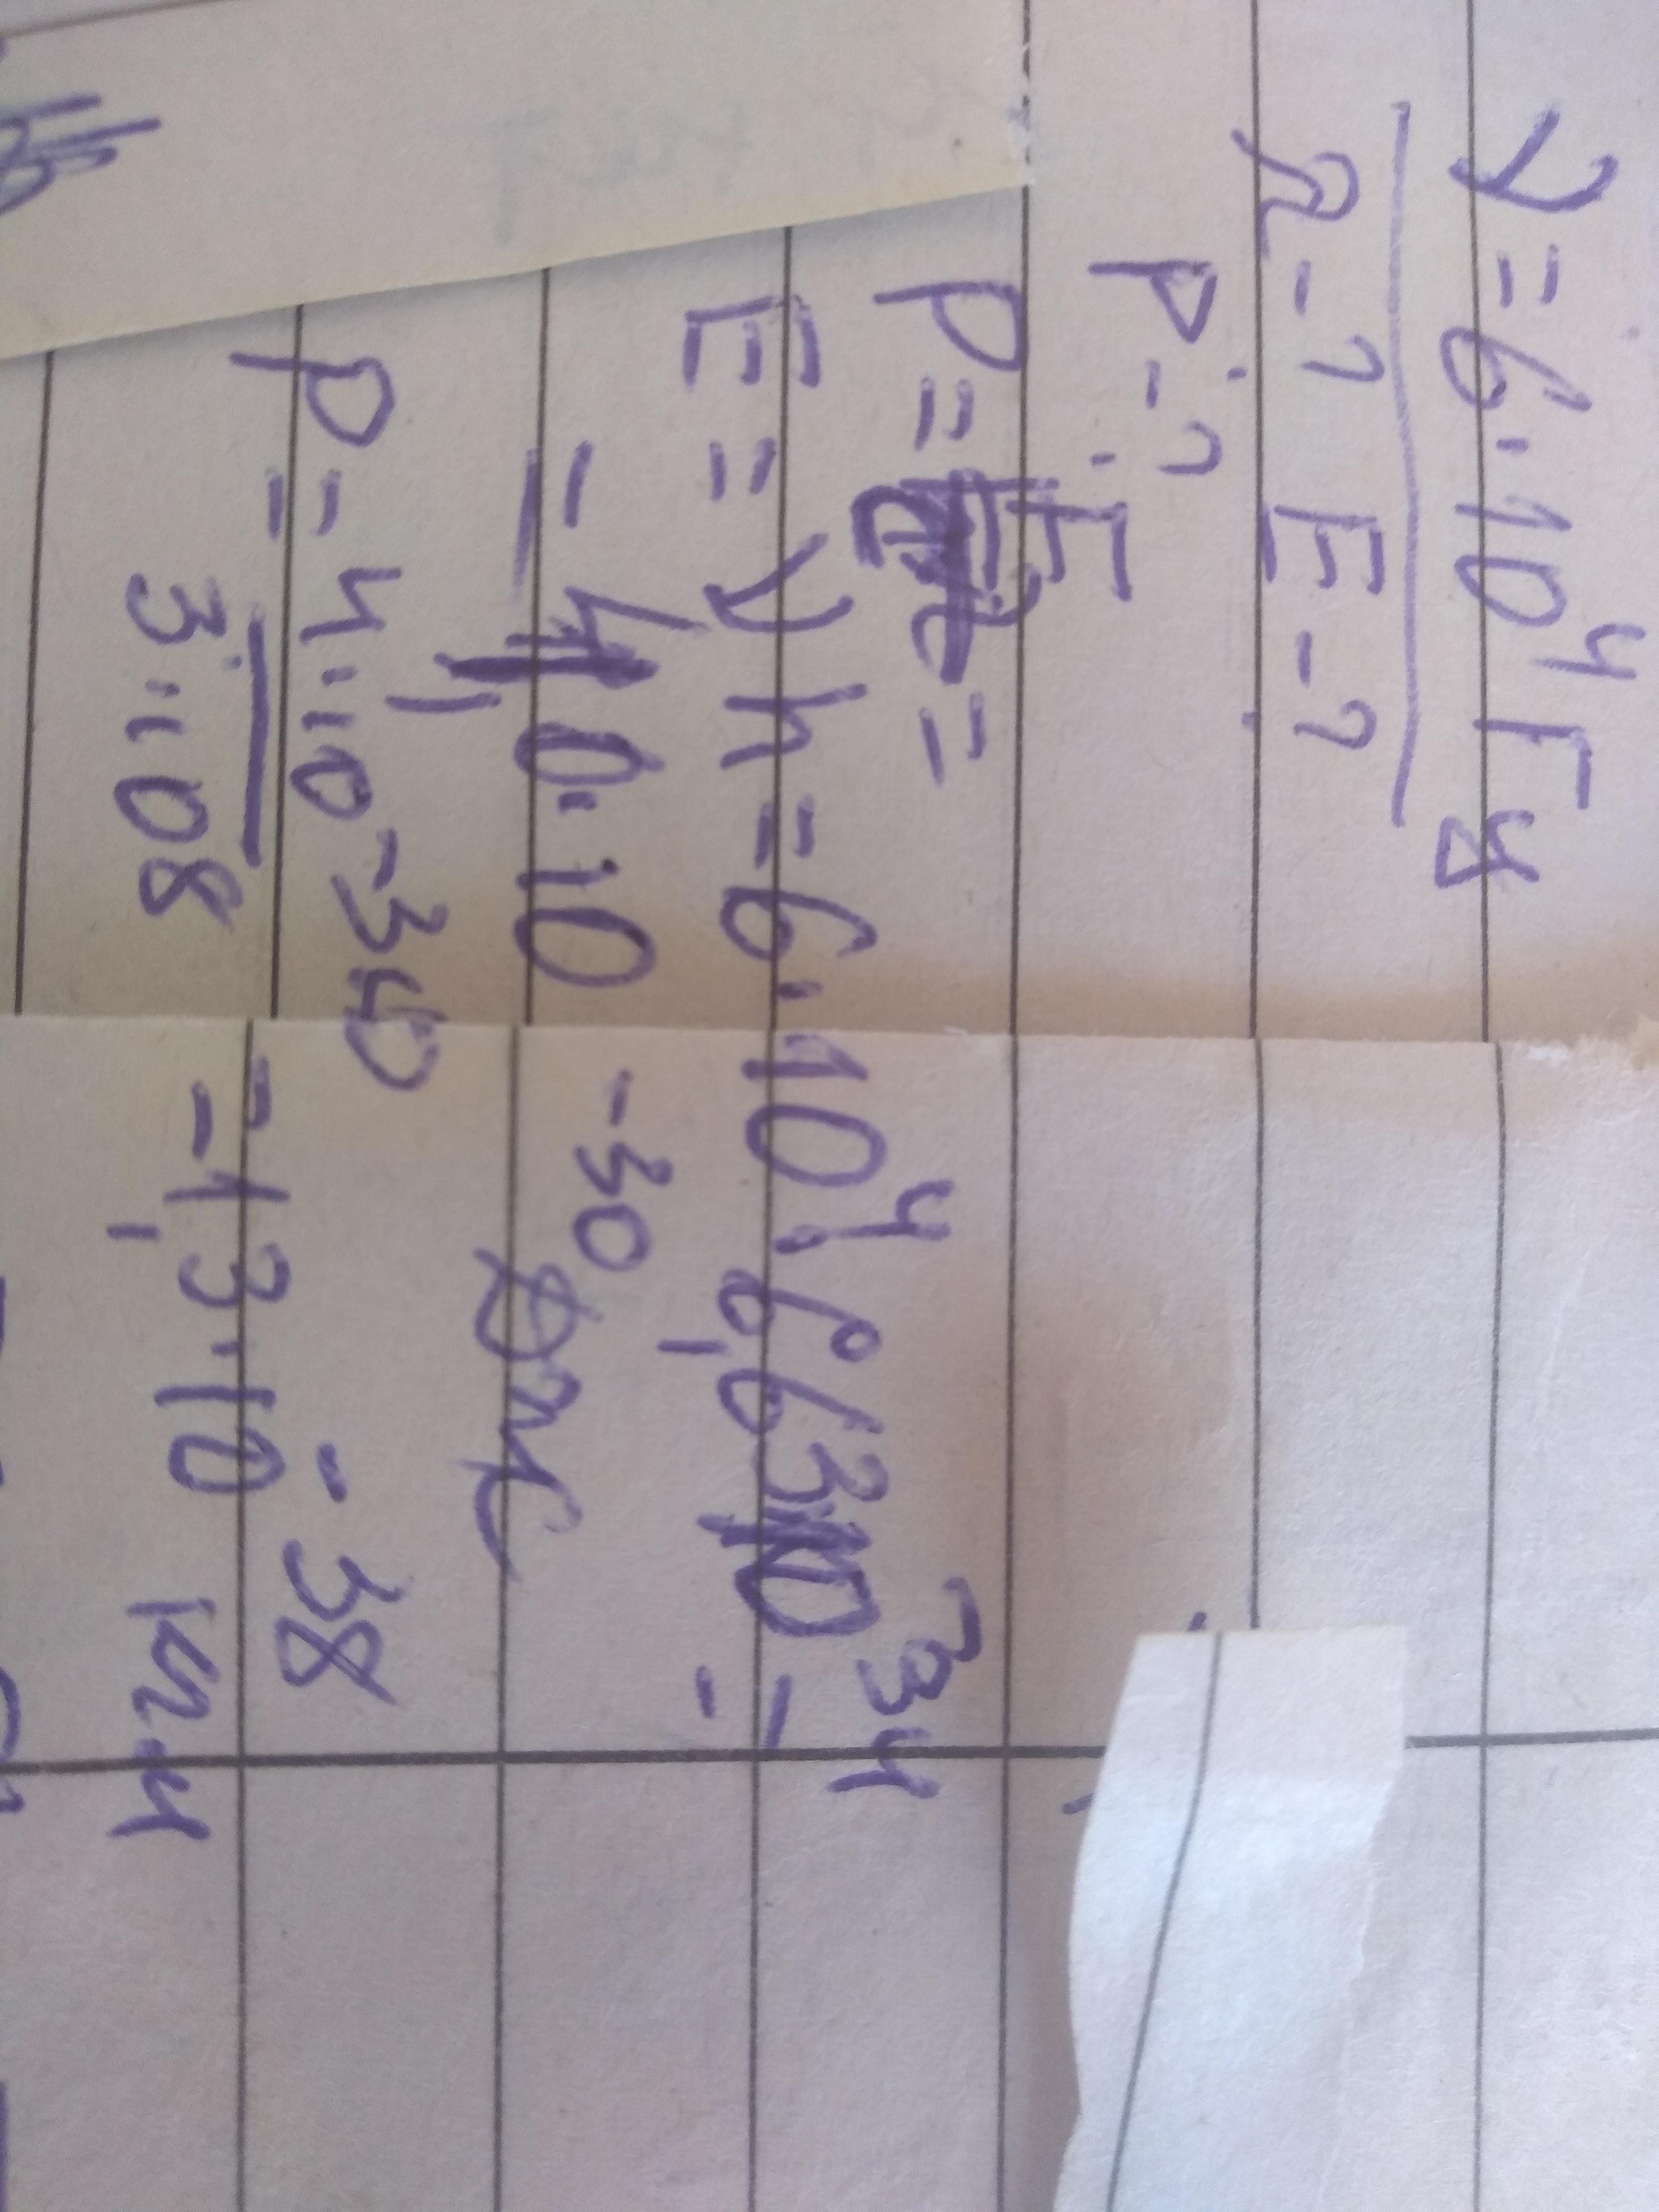 ν = 6·10⁴ Гц
λ-? E-?
p-?
p = E =
E = νh = 6·10⁴·6,63·10⁻³⁴ =
= 4,0·10⁻³⁰ Дж
p = 4·10⁻³⁰ = 1,3·10⁻³⁸ кг м
3·10⁸